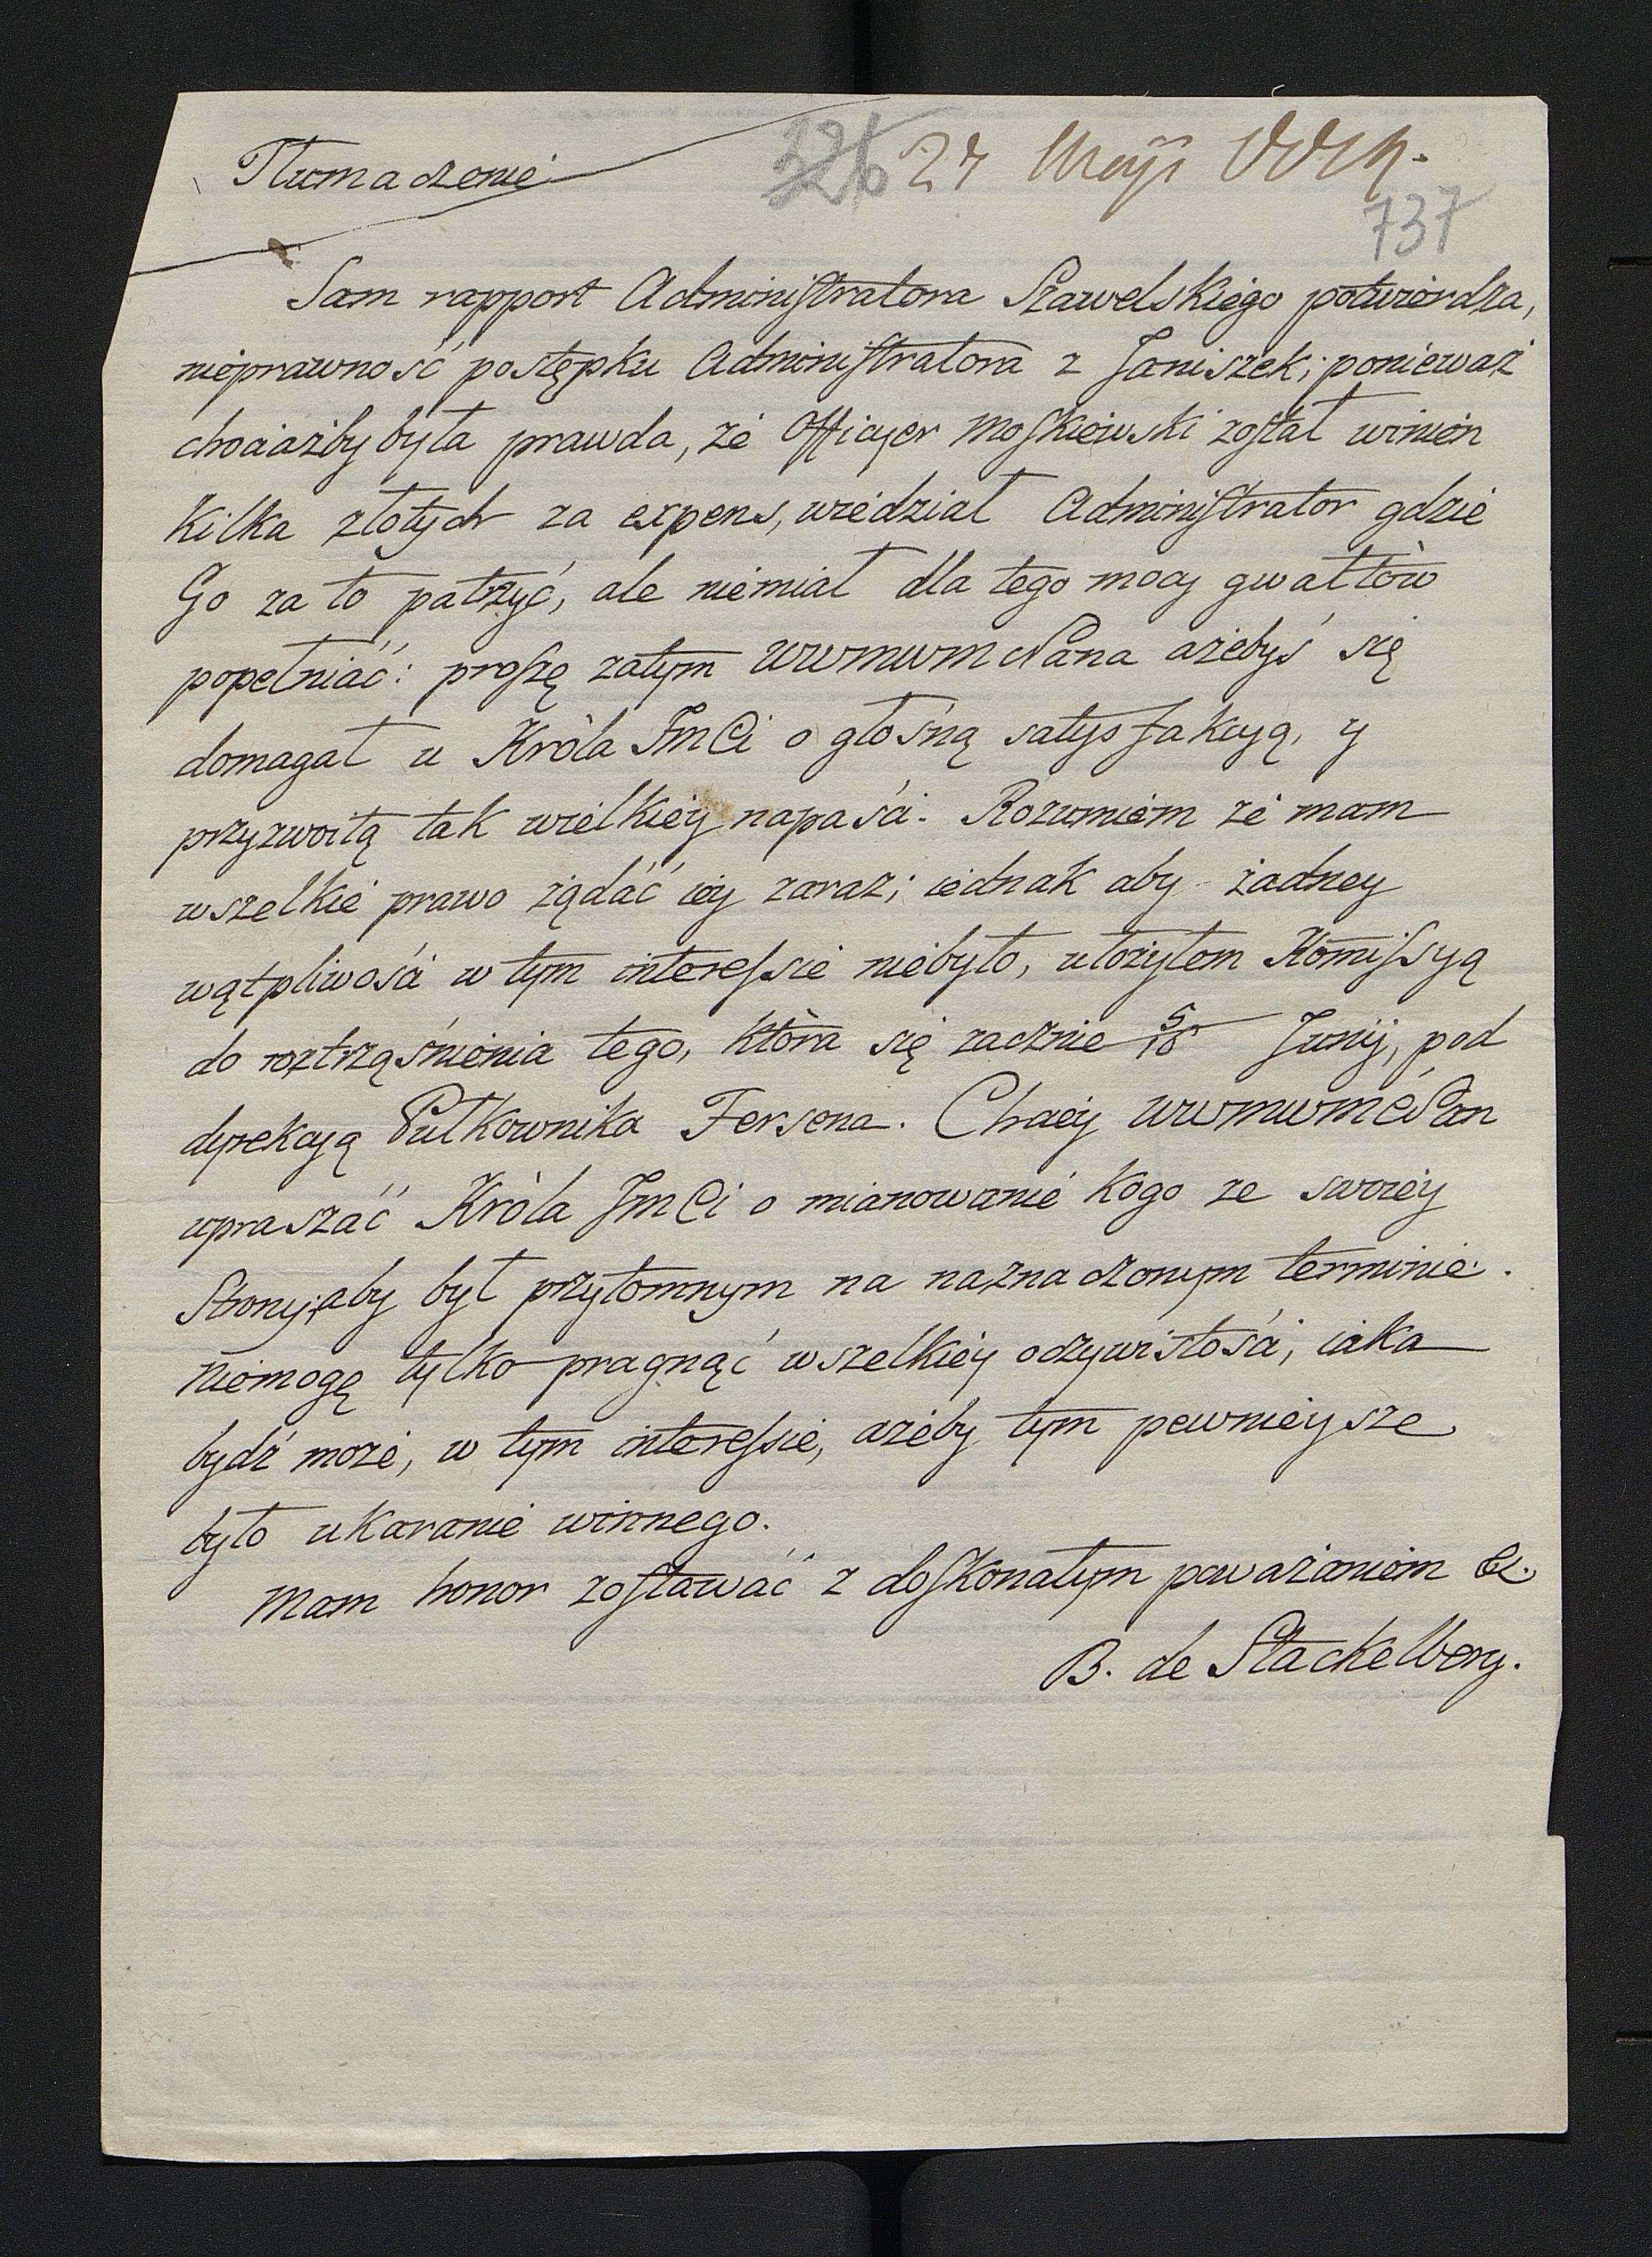 Tłumaczenie
326 27 Maji
737
Sam rapport Administratora Szawelskiego potwierdza,
nieprawność postępku Administratora z Janiszek; ponieważ
chociażby była prawda, że Officyer Moskiewski został winien
kilka złotych za expens, wiedział Administrator gdzie
Go za to patrzyć, ale niemiał dla tego mocy gwałtów
popełniać: proszę zatym WWMWM Pana ażebyś się
domagał u Króla JmCi o głośną satysfakcyą, y
przyzwoitą tak wielkiey napaści. Rozumiem że mam
wszelkie prawo żądać iey zaraz; iednak aby żadney
wątpliwości w tym interessie niebyło, ułożyłem Kommissyą
do roztrząśnienia tego, która się zacznie 5/16 Junij, pod
dyrekcyą Pułkownika Fersena. Chciey WWMWMć Pan
upraszać Króla JmCi o mianowanie kogo ze swoiey
Strony, aby był przytomnym na naznaczonym terminie.
Niemogę tylko pragnąć wszelkiey oczywistości, iaka
bydź może, w tym interessie, ażeby tym pewnieysze
było ukaranie winnego.
Mam honor zostawać z doskonałym poważaniem &c.
B. de Stackelberg.